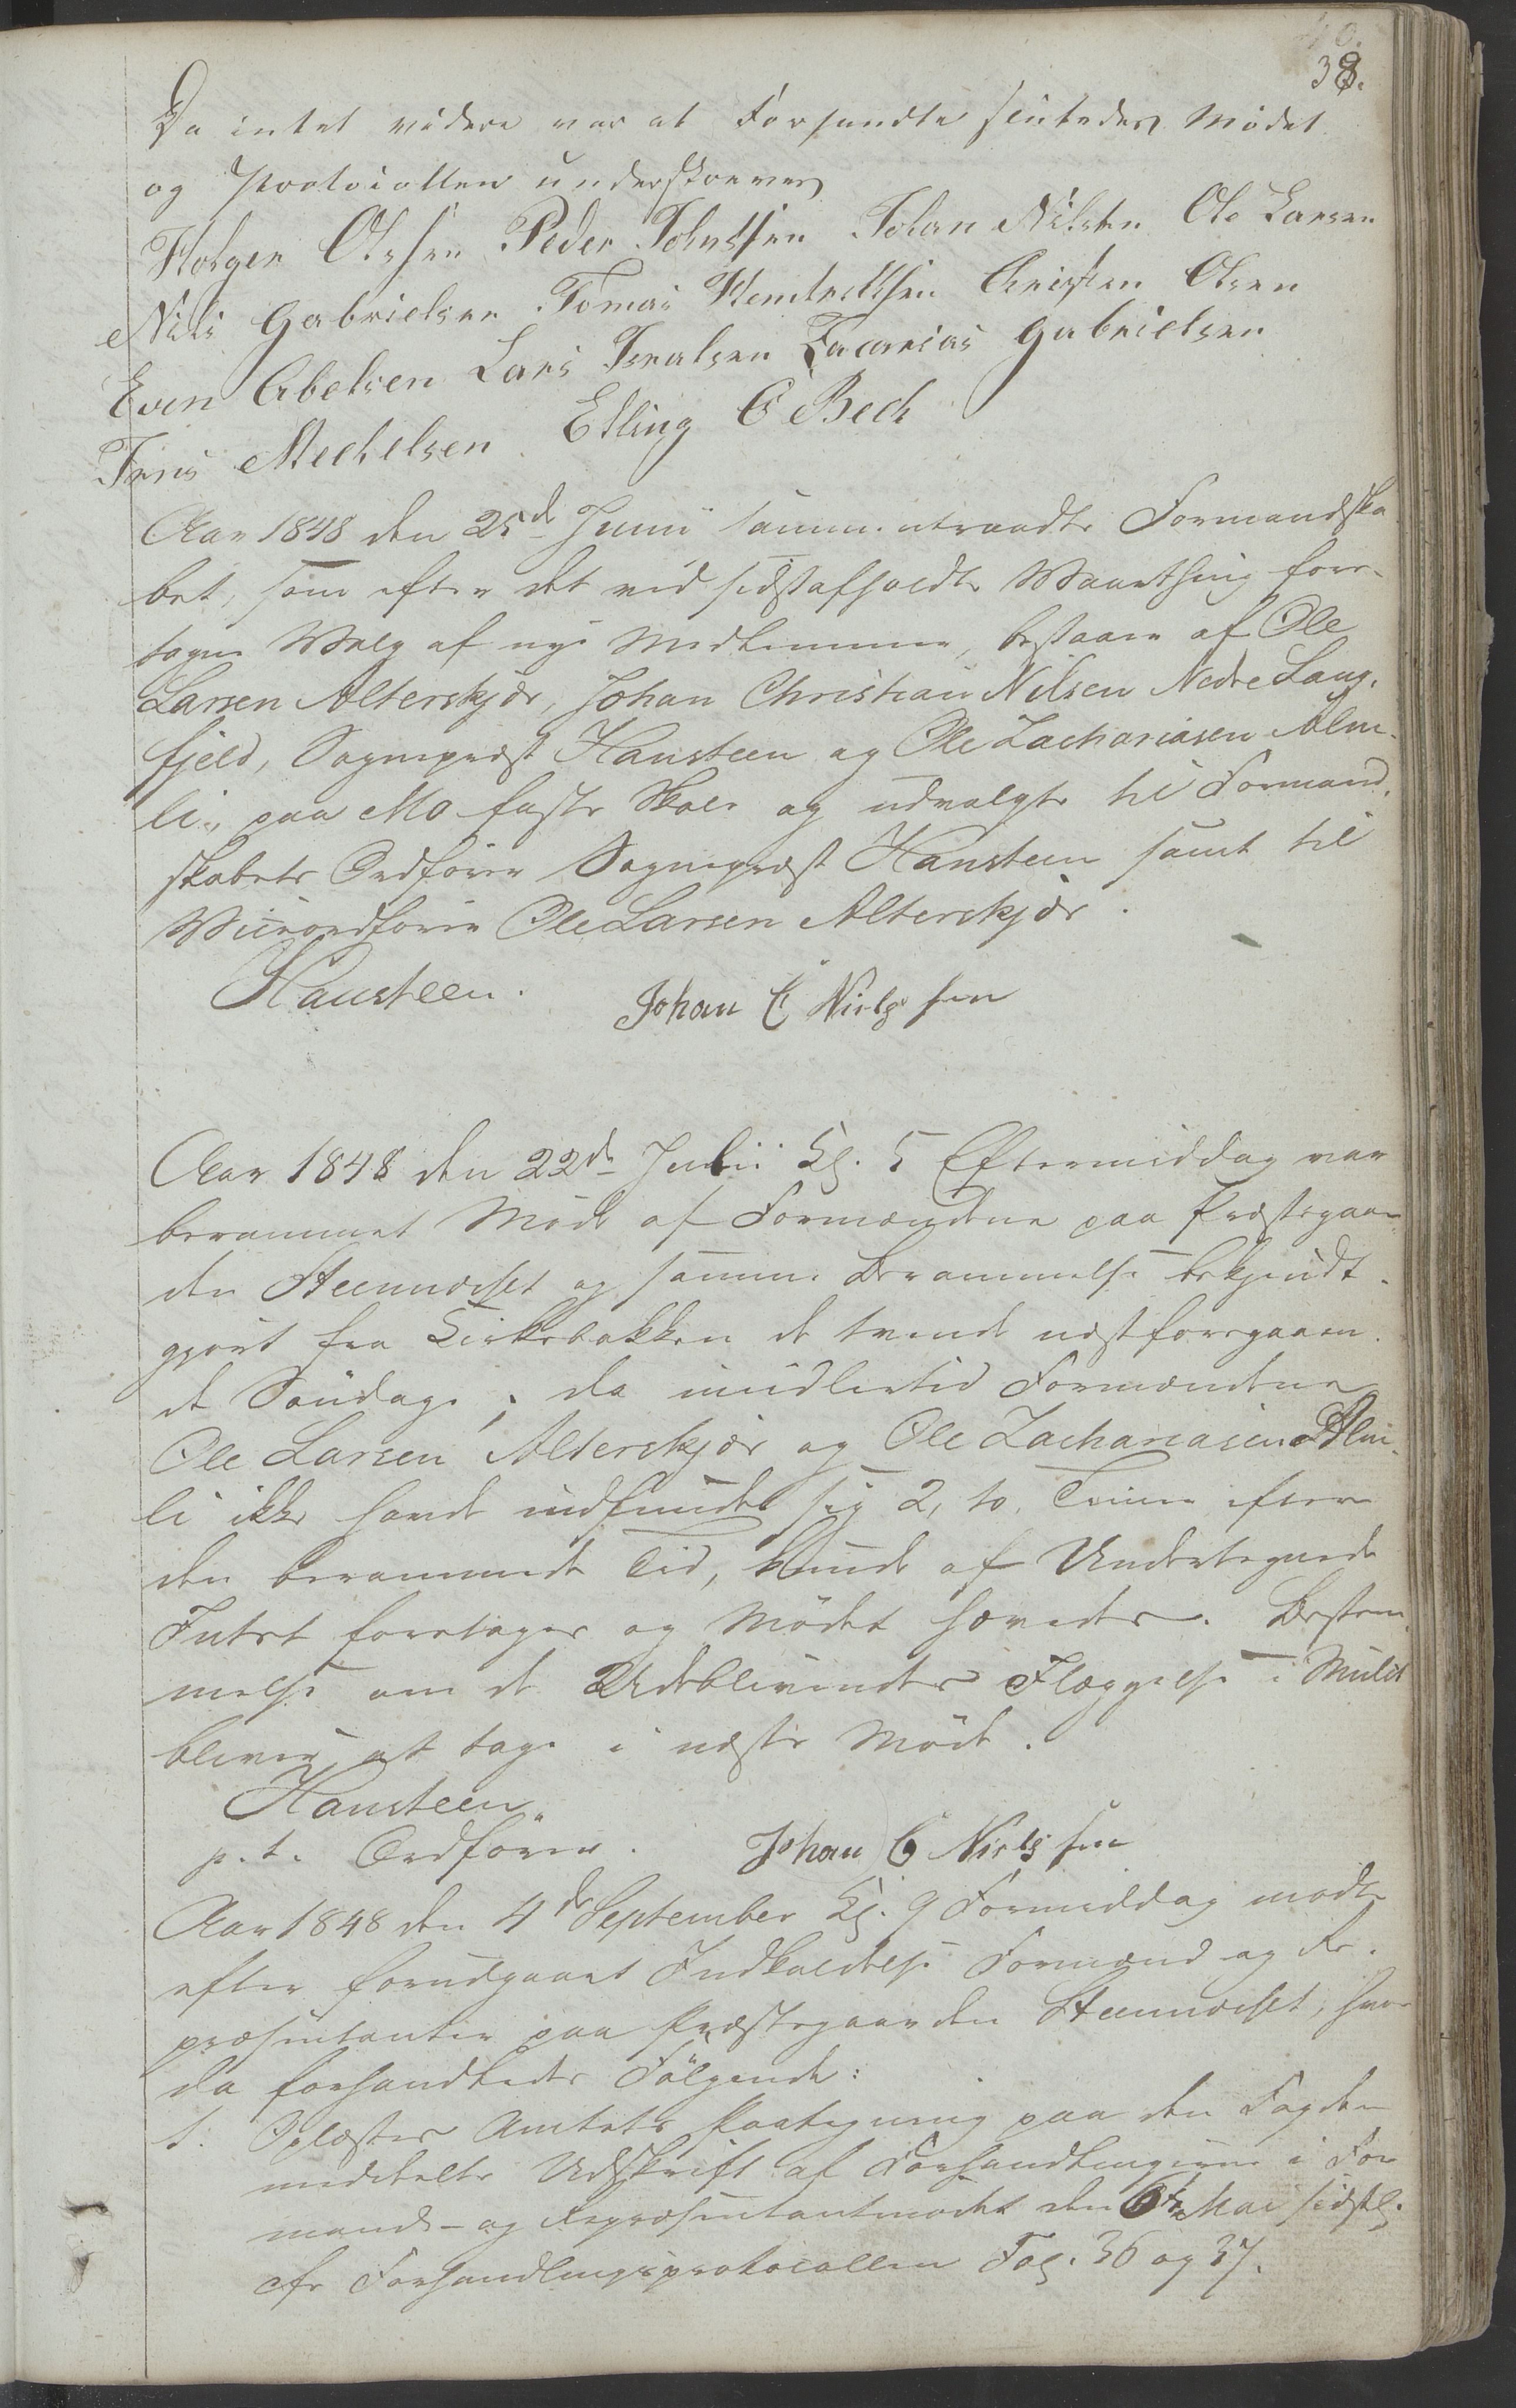 38.
Da intet videre var at Forhandle sluttedes Mødet
og Protocollen underskreves
Holger Olesen Peder Johnssen Johan Nilsen Ole Larsen
Nils Gabrielsen Tomas Hendrikssen Cristen Olsen
Even Abelsen Lars Israelsen Zacarias Gabrielsen
Jens Mechelsen Elling O Bech
Aar 1848 den 25de Junii sammentraadte Formandska
bet, som efter det ved sidstafholdte Waarthing fore-
tagne Walg af nye Medlemmer, bestaaer af Ole
Larsen Alterskjær, Johan Christian Nilsen Nedre Lang-
fjeld, Sognepræst Hansteen og Ole Zachariasen Alm-
li, paa Mo faste Skole og udvalgte til Formand-
skabets Ordfører Sognepræst Hansteen samt til
Viceordfører Ole Larsen Alterskjær.
Hansteen. Johan C Nielssen
Aar 1848 den 22de Julii Kl. 5 Eftermiddag var
berammet Møde af Formændene paa Præstegaar-
den Steennæsset og samme Berammelse bekjendt-
gjort fra Kirkebakken de tvende næstforegaaen-
de Søndage; da imidlertid Formændene
Ole Larsen Alterskjær og Ole Zachariasen Alm-
li ikke havde indfundet sig 2, to, Timer efter
den berammede Tid, kunde af Undertegnede
Intet foretages og Mødet hævedes. Bestem-
melse om de Udeblivendes Ilæggelse i Mulct
bliver at tage i næste Møde.
Hansteen
p.t. Ordfører. Johan C Nielssen
Aar 1848 den 4de September Kl. 9 Formiddag mødte
efter forudgaaet Indkaldelse Formænd og Re-
præsentanter paa Præstegaarden Steennæsset, hvor
da forhandledes Følgende:
1. Oplæstes Amtets Paategning paa den Fogden
meddelte Udskrift af Forhandlingerne i For
mands- og Repræsentantmødet den 6te Mai sidstl.
cfr Forhandlingsprotocollen Fol. 36 og 37.